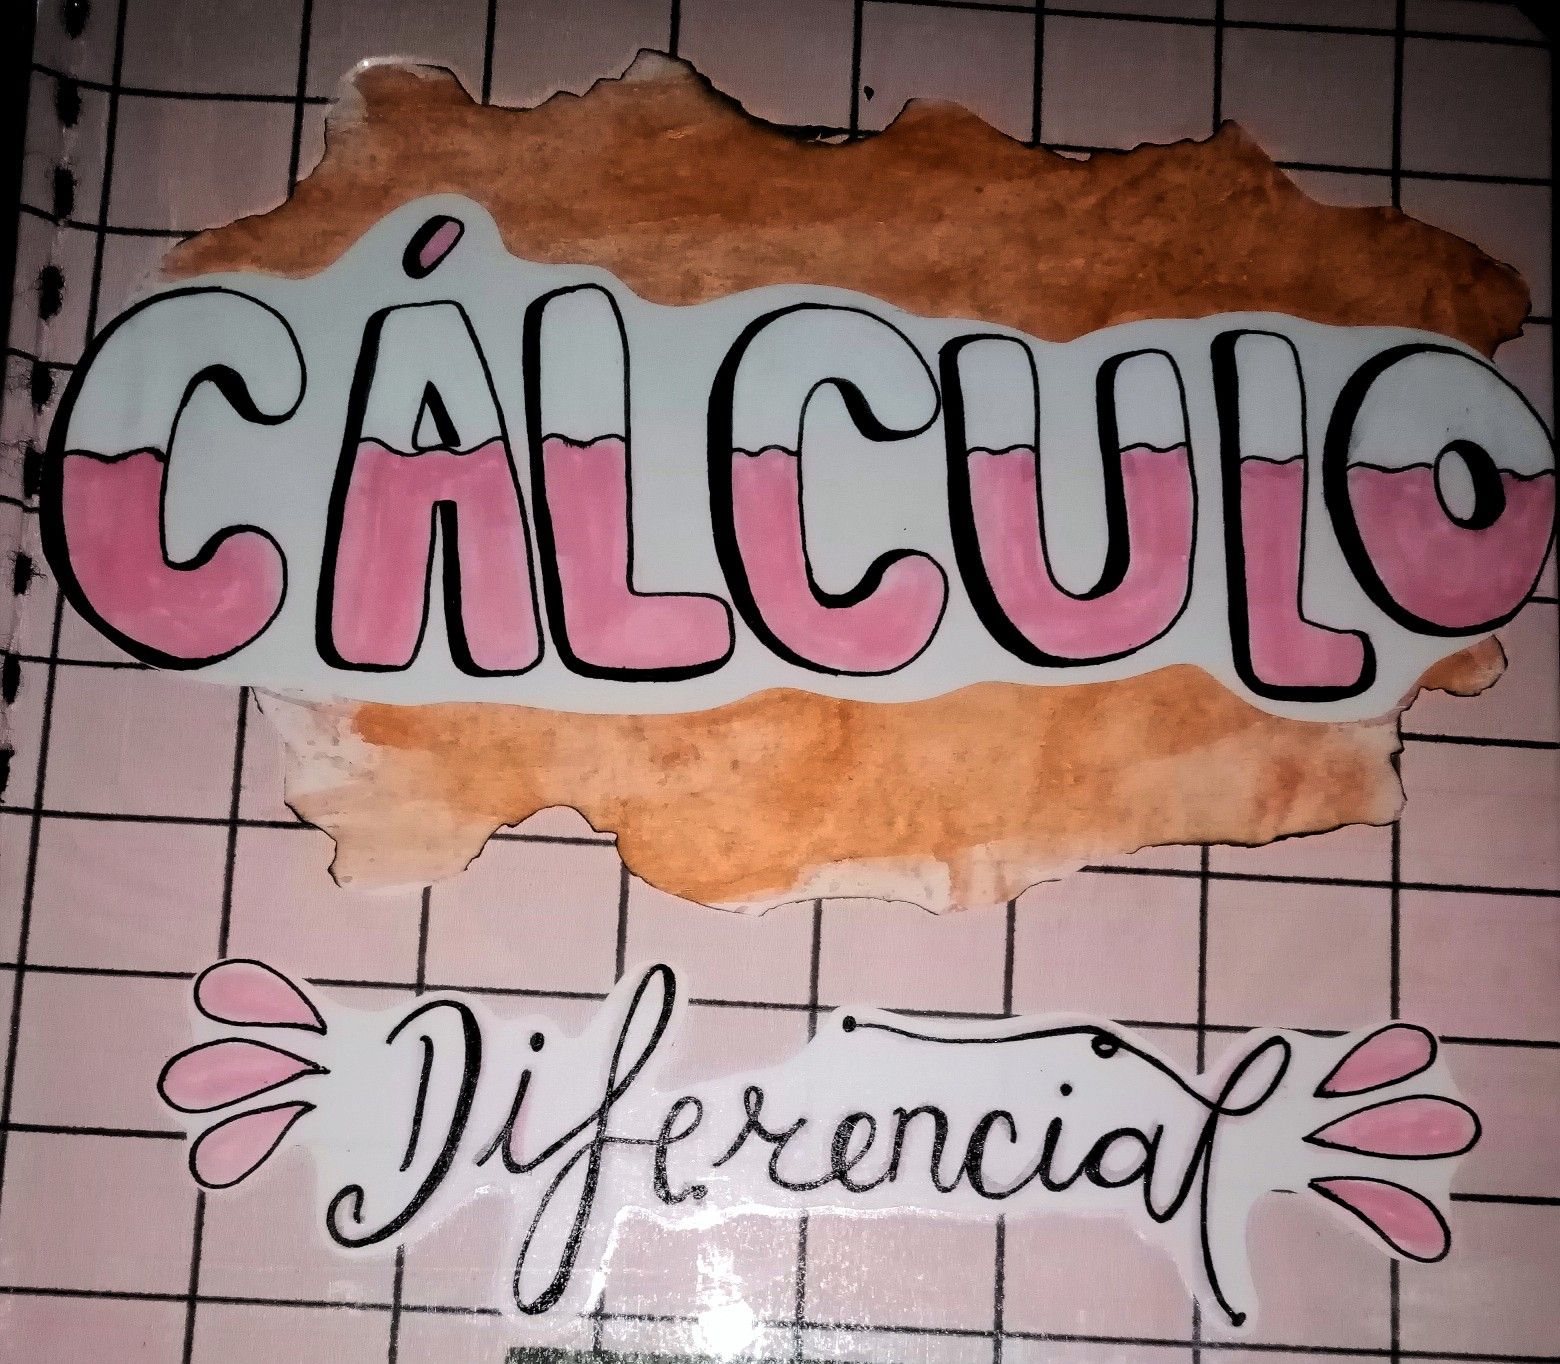 CÁLCULO
Diferencial